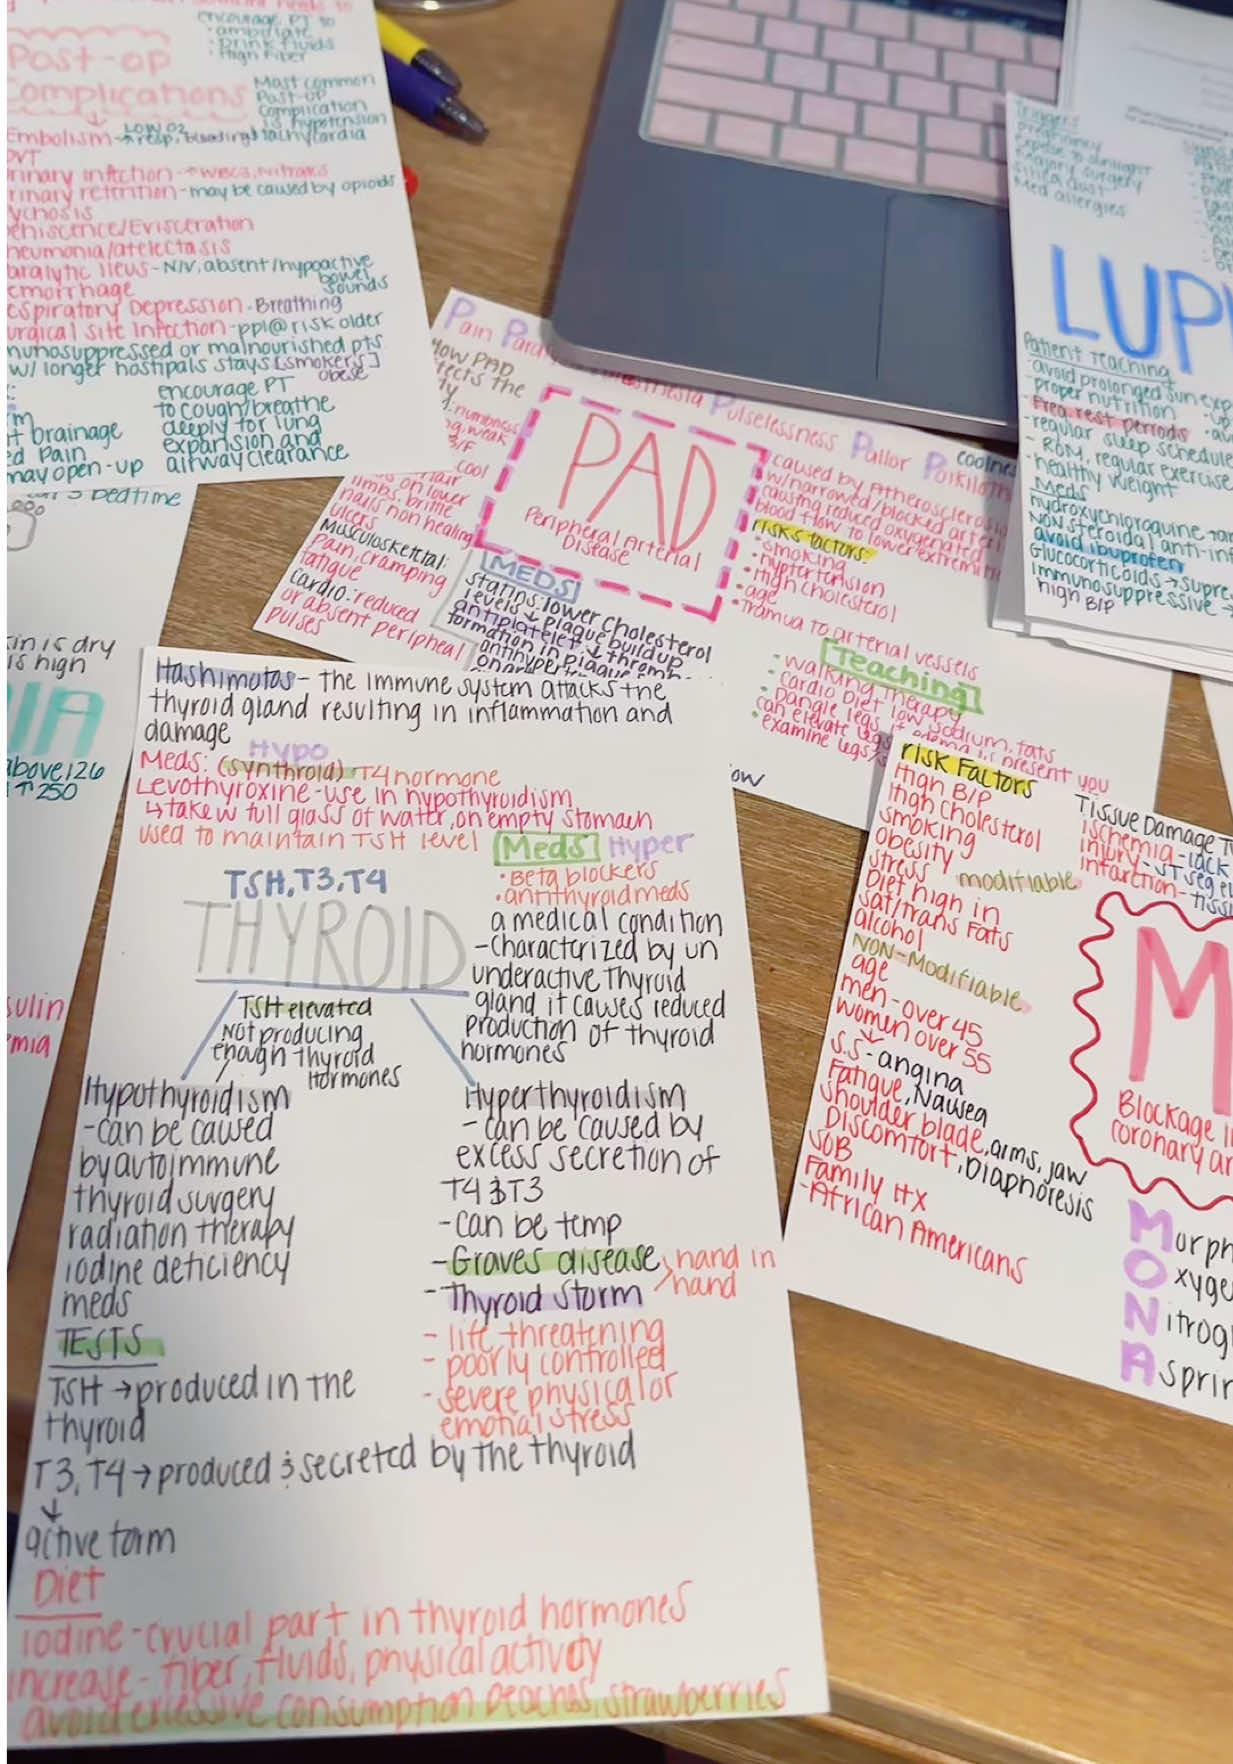 encourage PT to
• ambulate
• Drink fluids
• High Fiber
Post-op
Complications
Most common
Post-op
Complication
is hypotension
Embolism→ Low O2
resp, bleeding, tachycardia
DVT
rinary infection-↑WBCs, Nitrates
rinary retention-may be caused by opioids
ychosis
ehiscence/Evisceration
neumonia/atelectasis
aralytic Ileus-N/V, absent/hypoactive
bowel
sounds
emorrhage
espiratory Depression-Breathing
urgical Site Infection-ppl@risk older
munosuppressed or malnourished pts
w/ longer hostipals stays [smokers]
obese
encourage PT
to cough/breathe
deeply for lung
expansion and
airway clearance
brainage
ed pain
may open-up
bedtime
in is dry
is high
IA
above 126
↑250
sulin
mia
Pain
Pulselessness Pallor
coolne
How PAD
numbness
weak
hair
cool
on lower
limbs, brittle
nails non healing
ulcers
Musculoskeltal:
Pain, cramping
fatigue
cardio: reduced
or absent peripheal
pulses
PAD
Peripheral Arterial
Disease
MEDS
statins: lower cholesterol
levels ↓ plaque buildup
antiplatelet ↓ thromb
formation in plaque
caused by Atherosclerosis
w/narrowed/blocked arter
causing reduced oxygenated
blood flow to lower extremi
risks factors:
• smoking
• hyptertension
• High cholesterol
• age
• tramua to arterial vessels
Teaching
• walking therapy
• cardio Diet low sodium, fats
• Dangle legs if edema is present you
can elevate legs
• examine legs/
ow
Triggers
pregnancy
Expose to sunlight
Majory surgery
silica dust
Med allergies
LUPU
Patient Teaching
-avoid prolonged sun exp
-proper nutrition
-Freq rest periods
-regular sleep schedule
- ROM, regular exercise
-healthy weight
Meds
hydroxychloroquine
NON steroidal anti-inf
avoid ibuprofen
Glucocorticoids→supre
Immunosuppressive→
high B/P
Hashimotos- the immune system attacks the
thyroid gland resulting in inflammation and
damage
Hypo
Meds: (synthroid)-T4 hormone
Levothyroxine-use in hypothyroidism
↳take w full glass of water, on empty stomach
used to maintain TSH level
Meds Hyper
•Beta blockers
•antithyroid meds
TSH, T3, T4
THYROID
a medical condition
-characterized by un
underactive Thyroid
gland it causes reduced
production of thyroid
hormones
TSH elevated
Not producing
enough thyroid
Hormones
Hypothyroidism
-can be caused
by autoimmune
thyroid surgery
radiation therapy
iodine deficiency
meds
Hyperthyroidism
- can be caused by
excess secretion of
T4 & T3
-can be temp
-Graves disease
hand in
hand
-Thyroid storm
- life threatening
- poorly controlled
- severe physical or
emotnal stress
TESTS
TSH→produced in the
thyroid
T3, T4→produced & secreted by the thyroid
↓
active form
Diet
iodine-crucial part in thyroid hormones
increase- fiber, fluids, physical activity
avoid excessive consumption peaches, strawberries
risk Factors
High B/P
High cholesterol
smoking
obesity
stress
modifiable
Diet high in
sat/trans fats
alcohol
NON-Modifiable
age
men-over 45
women over 55
↓
S.S-angina
Fatigue, Nausea
shoulder blade, arms, jaw
Discomfort, Diaphoresis
SOB
Family Hx
-African Americans
Tissue Damage T
ischemia-lack
injury-ST seg el
infarction-tiss
M
Blockage i
coronary ar
Morph
Oxyge
Nitrog
Asprir